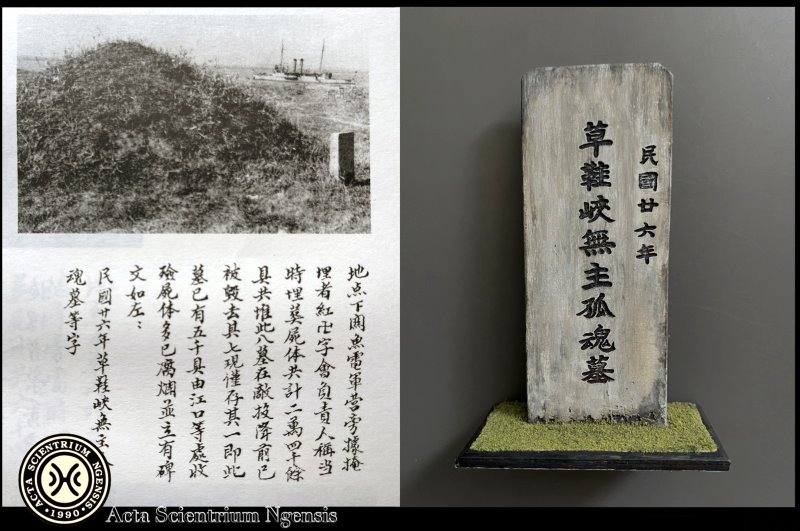 地点下關魚雷軍营旁據掩
埋者紅卍字會負責人稱当
時埋葬屍体共計二萬四千餘
具共堆此八墓在敵投降前已
被毀去其七現僅存其一即此
墓已有五千具由江口等處收
殮屍体多已腐爛並立有碑
文如左：
民國廿六年草鞋峽無主
魂墓等字
民國廿六年
草鞋峽無主孤魂墓
ACTA SCIENTRIUM NGENSIS
·1990·
Acta Scientrium Ngensis